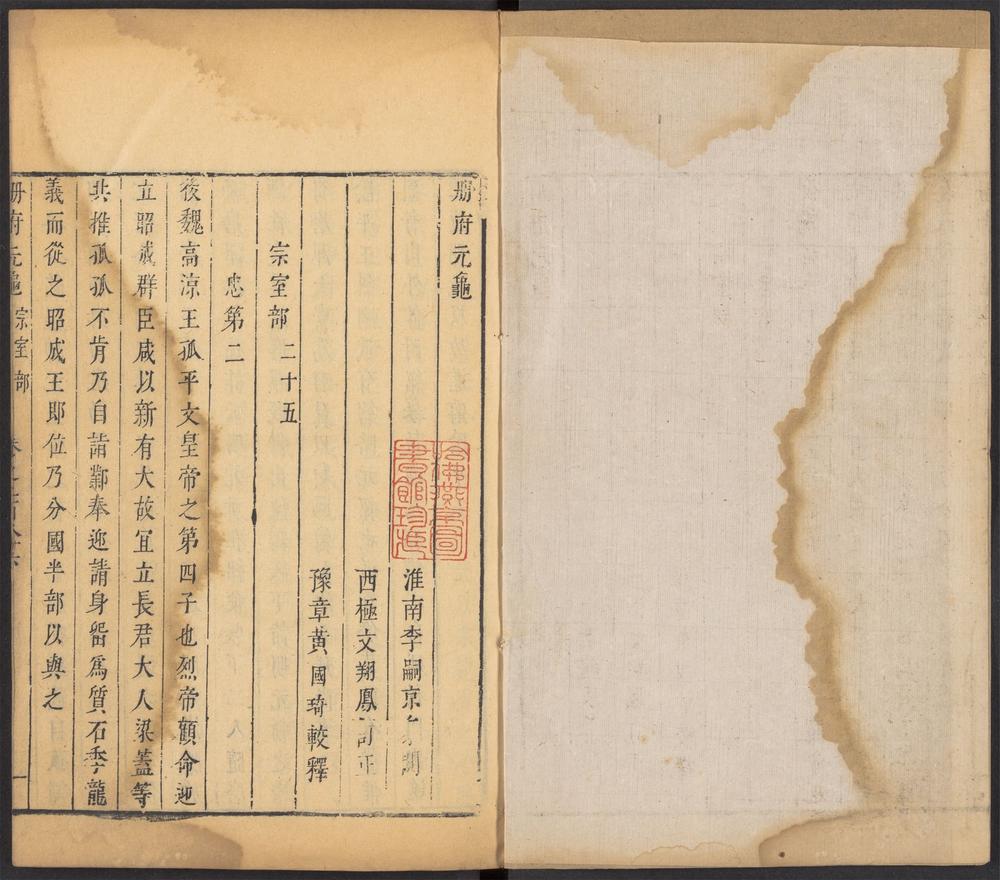 册府元龜
淮南李嗣京
西極文翔鳳訂正
豫章黃國琦較釋
宗室部 二十五
忠第二
後魏高涼王孤平文皇帝之第四子也烈帝顧命迎
立昭成群臣咸以新有大故宜立長君大人梁蓋等
共推孤孤不肯乃自詣鄴奉迎請身留爲質石季龍
義而從之昭成王即位乃分國半部以與之
册府元龜 宗室部
哈佛燕京圖書館珍藏